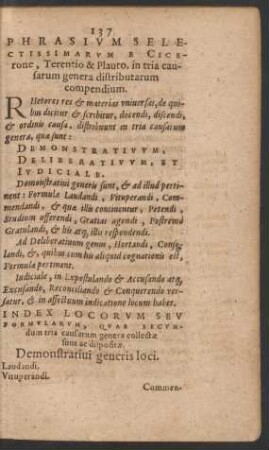 137
PHRASIVM SELE-
CTISSIMARVM E CICE-
rone, Terentio & Plauto, in tria cau-
sarum genera distributarum
compendium.
RHetores res & materias vniuersas, de qui-
bus dicitur & scribitur, docendi, discendi,
& ordinis causa, distribuunt in tria causarum
genera, quæ sunt:
DEMONSTRATIVVM,
DELIBERATIVVM, ET
IVDICIALE.
Demonstratiui generis sunt, & ad illud perti-
nent: Formulæ Laudandi, Vituperandi, Com-
mendandi, & quæ illis continentur, Petendi,
Studium offerendi, Gratias agendi, Postremò
Gratulandi, & his atq; illis respondendi.
Ad Deliberatiuum genus, Hortandi, Conso-
landi, &, quibus cum his aliquid cognationis est,
Formulæ pertinent.
Iudiciale, in Expostulando & Accusando atq;
Excusando, Reconciliando & Conquerendo ver-
satur, & in affectuum indicatione locum habet.
INDEX LOCORVM SEV
FORMVLARVM, QVAE SECVN-
dum tria causarum genera collectæ
sunt ac dispositæ.
Demonstratiui generis loci.
Laudandi.
Vituperandi.
Commen-